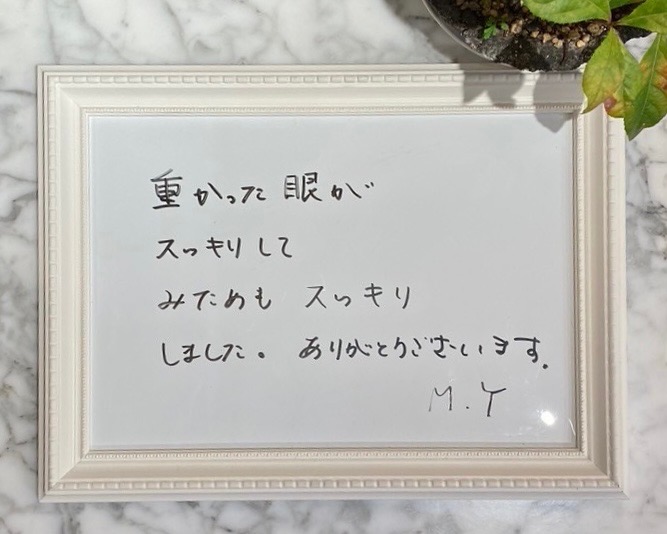 重かった 眼が
スッキリして
みためも スッキリ
しました。 ありがとうございます。
M.Y